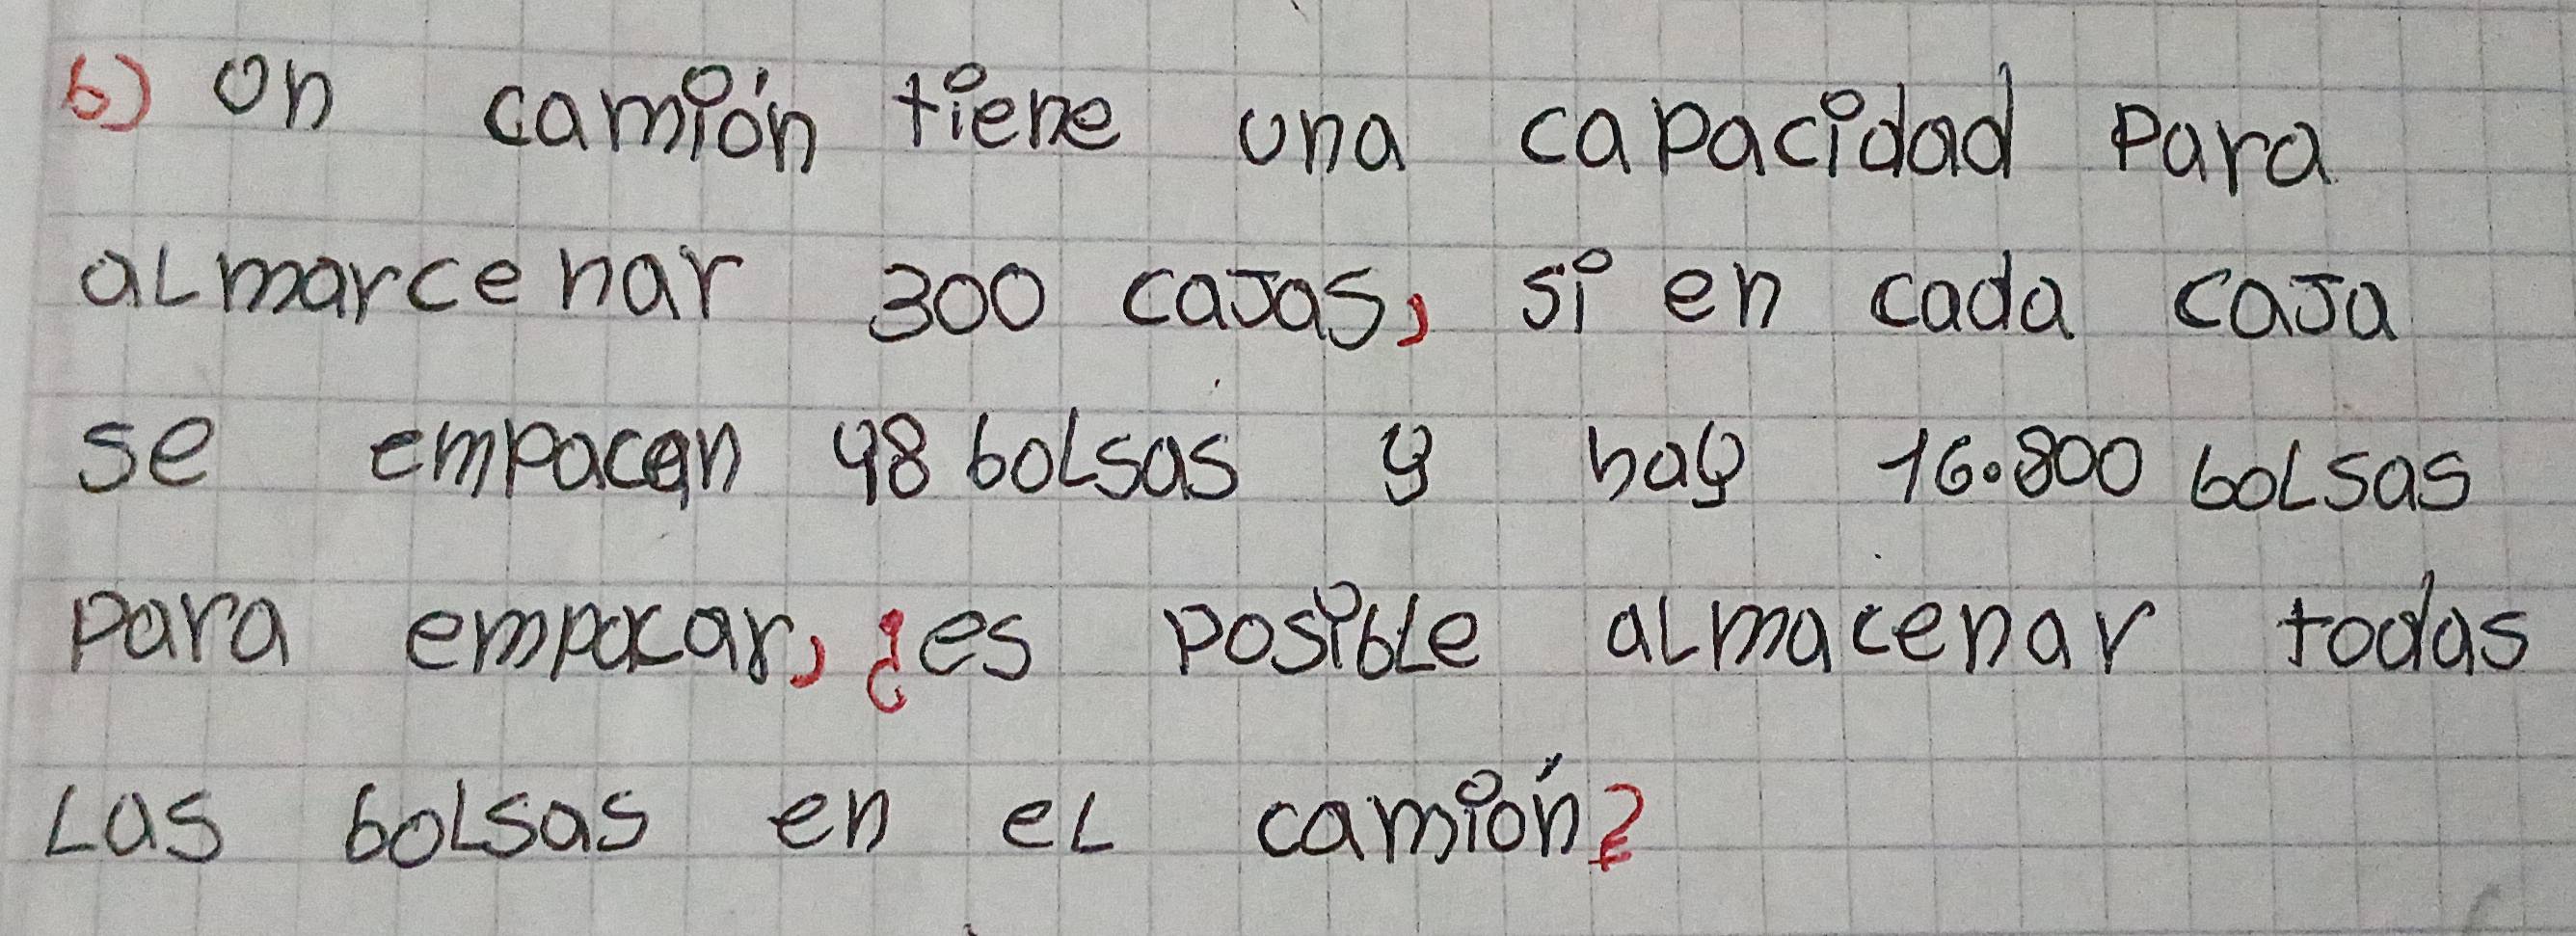 b) Un camión tiene una capacidad para
almarcenar 300 cajas, si en cada caja
se empacan 48 bolsas y hay 16.800 bolsas
para empacar, ¿es posible almacenar todas
las bolsas en el camión?